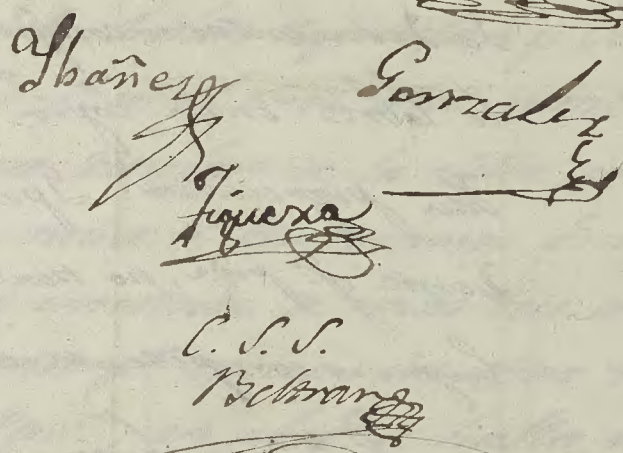 Ybañez
Gonzalez
Figuexa
C. S. S.
Beltran